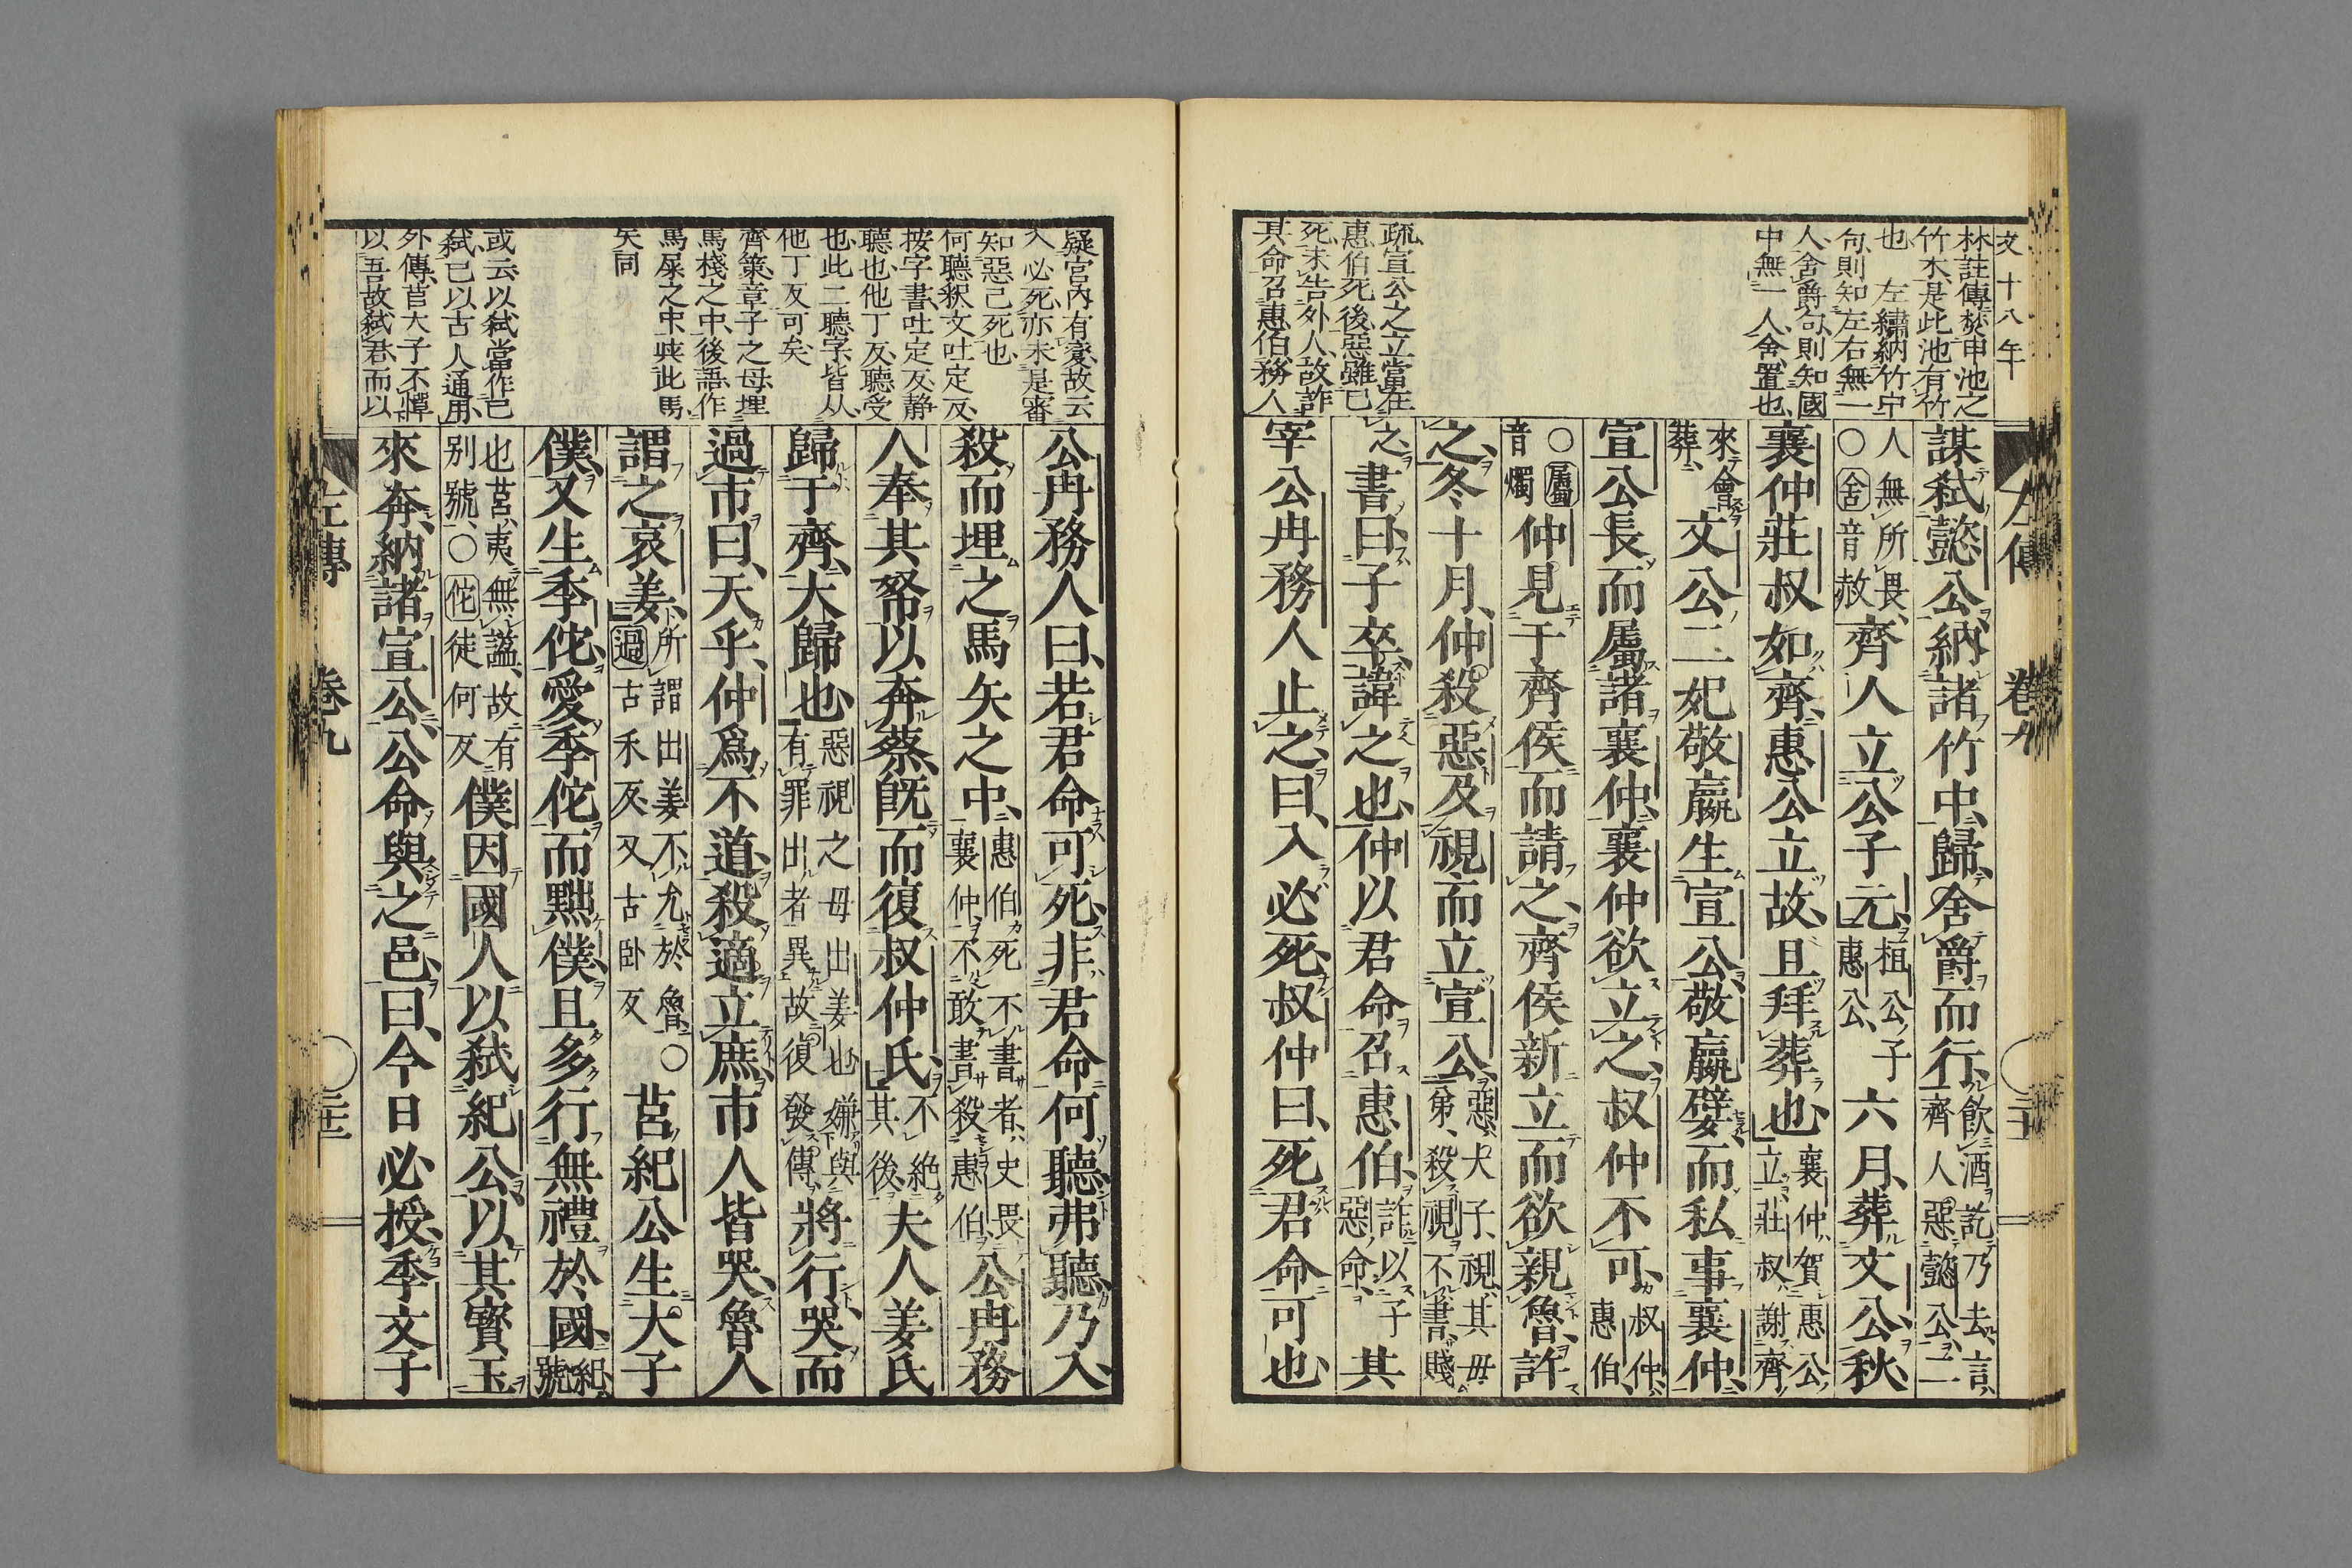 文十八年
左傳 卷九 二十
林註傳於申池之
竹木是此池有竹
也 左繡納竹中
句則知左右無一
人舍爵句則知國
中無一人舍置也
疏宣公之立當在
惠伯死後惡雖已
死未告外人故詐
其命召惠伯務人
謀弑懿公納諸竹中歸舍爵而行飲酒訖乃去言齊人惡懿公二
人無所畏○舍音赦齊人立公子元桓公子惠公六月葬文公秋
襄仲莊叔如齊惠公立故且拜葬也襄仲賀惠公立莊叔謝齊
來會葬文公二妃敬嬴生宣公敬嬴嬖而私事襄仲
宣公長而屬諸襄仲襄仲欲立之叔仲不可叔仲惠伯
○屬音燭仲見于齊侯而請之齊侯新立而欲親魯許
之冬十月仲殺惡及視而立宣公惡大子視其母弟殺視不書賤
之書曰子卒諱之也仲以君命召惠伯詐以子惡命其
宰公冉務人止之曰入必死叔仲曰死君命可也
疑宮內有變故云
入必死亦未是審
知惡已死也
何聽釈文吐定反
按字書吐定反静
聽也他丁反聽受
也此二聽字皆从
他丁反可矣
齊策章子之母埋
馬棧之中後語作
馬屎之中與此馬
矢同
或云以弑當作已
弑已以古人通用
外傳莒大子不憚
以吾故弑君而以
公冉務人曰若君命可死非君命何聽弗聽乃入
殺而埋之馬矢之中惠伯死不書者史畏襄仲不敢書殺惠伯公冉務
人奉其帑以奔蔡既而復叔仲氏不絶其後夫人姜氏
歸于齊大歸也惡視之母出姜也嫌與有罪出者異故復發傳將行哭而
過市曰天乎仲爲不道殺適立庶市人皆哭魯人
謂之哀姜所謂出姜不允於魯○過古禾反又古卧反莒紀公生大子
僕又生季佗愛季佗而黜僕且多行無禮於國紀號
也莒夷無謚故有別號○佗徒何反僕因國人以弑紀公以其寶玉
來奔納諸宣公公命與之邑曰今日必授季文子
左傳 卷九 二十一